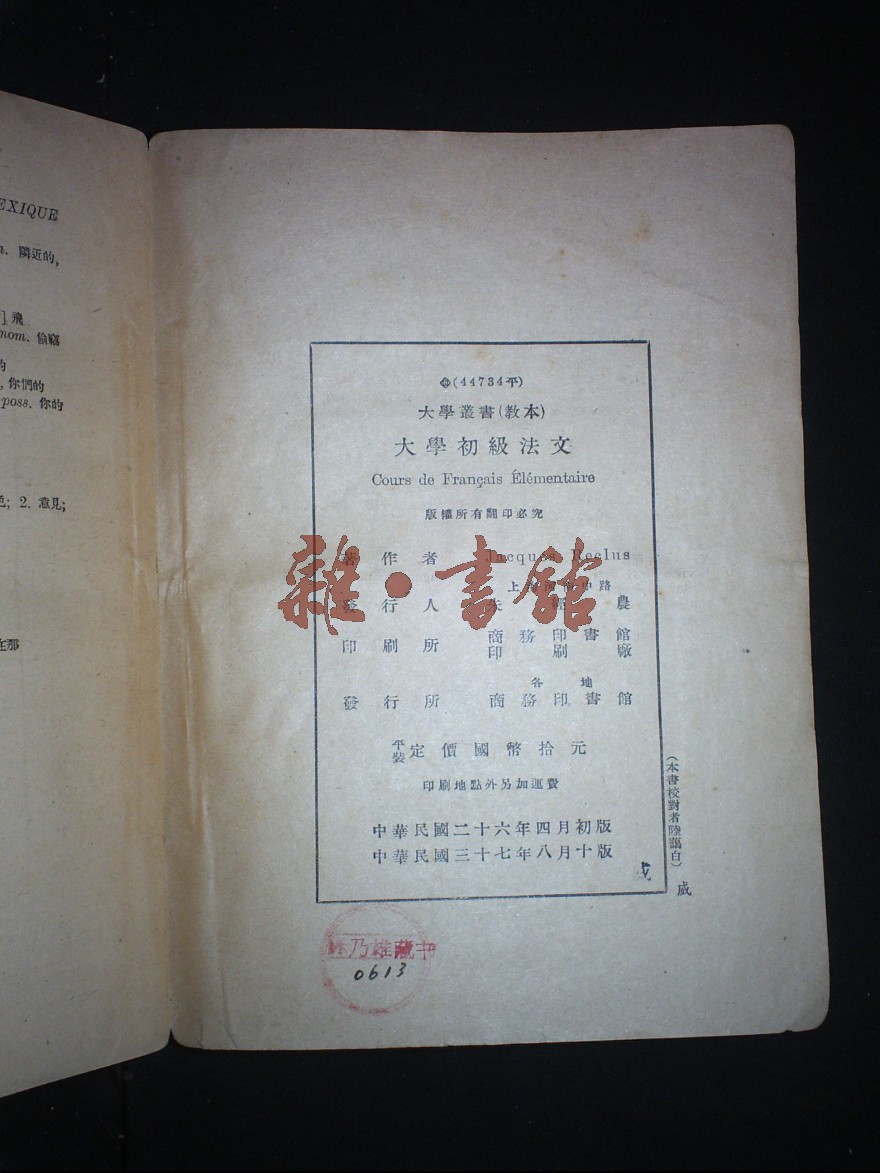 EXIQUE
隣近的,
飛
nom. 偷竊
的
, 你們的
poss. 你的
; 2. 意見;
在那
(44734平)
大學叢書(教本)
大學初級法文
Cours de Français Élémentaire
版權所有翻印必究
著作者 Jacques Reclus
上海河南中路
發行人 朱經農
印刷所 商務印書館印刷廠
各地
發行所 商務印書館
平裝 定價國幣拾元
印刷地點外另加運費
中華民國二十六年四月初版
中華民國三十七年八月十版
(本書校對者陸讜白)
雜·書館
0613